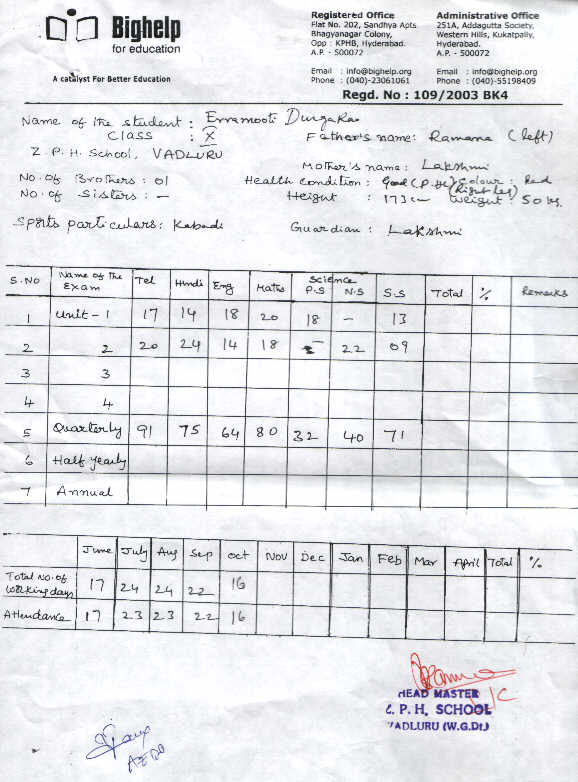 Bighelp
for education
A catalyst For Better Education
Registered Office
Flat No. 202, Sandhya Apts.
Bhagyanagar Colony,
Opp : KPHB, Hyderabad.
A.P. - 500072
Email : info@bighelp.org
Phone : (040)-23061061
Administrative Office
251A, Addagutta Society,
Western Hills, Kukatpally,
Hyderabad.
A.P. - 500072
Email : info@bighelp.org
Phone : (040)-55198409
Regd. No : 109/2003 BK4
Name of the student : Erramooti Durga Rao
Class : X
Father's name: Ramana (left)
Z.P.H. School, VADLURU
Mother's name : Lakshmi
No. of Brothers : 01
Health condition : Good (P.H) Colour : Red
(Right Leg)
No. of Sisters : -
Height : 173 cm Weight : 50 kgs.
Sports particulars: Kabadi
Guardian : Lakshmi
S.NO Name of the Exam Tel Hindi Eng Maths Science P.S N.S S.S Total % Remarks
1 Unit - 1 17 14 18 20 18 - 13
2 2 20 24 14 18 - 22 09
3 3
4 4
5 Quarterly 91 75 64 80 32 40 71
6 Half yearly
7 Annual
June July Aug Sep Oct Nov Dec Jan Feb Mar April Total %
Total No. of working days 17 24 24 22 16
Attendance 17 23 23 22 16
HEAD MASTER
Z. P. H. SCHOOL
VADLURU (W.G.Dt.)